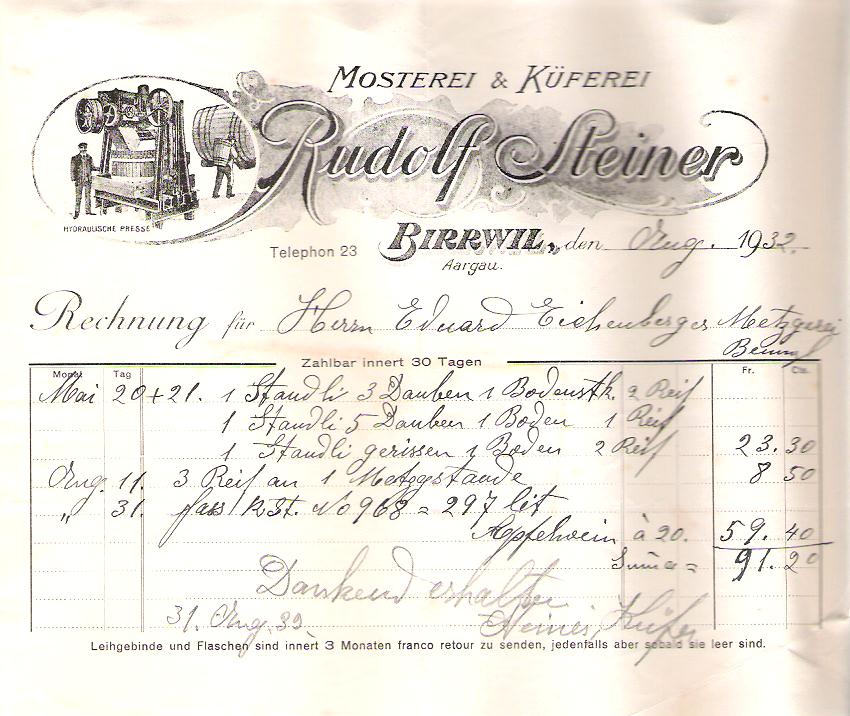 MOSTEREI & KÜFEREI
Rudolf Steiner
HYDRAULISCHE PRESSE
Telephon 23
BIRRWIL, den Aug. 1932.
Aargau.
Rechnung für Herrn Eduard Eichenberger Metzgerei
Zahlbar innert 30 Tagen
Monat Tag Fr. Cts.
Mai 20+21. 1 Standli 3 Dauben 1 Bodenstk. 2 Reif
1 Standli 5 Dauben 1 Boden 1 Reif
1 Standli gerissen 1 Boden 2 Reif 23.30
Aug. 11. 3 Reif an 1 Metzgstande 8 50
" 31. fass No 968 = 297 lit
Apfelwein à 20. 59.40
Suma = 91.20
Dankend erhalten
31. Aug. 32. Küfer
Leihgebinde und Flaschen sind innert 3 Monaten franco retour zu senden, jedenfalls aber sobald sie leer sind.